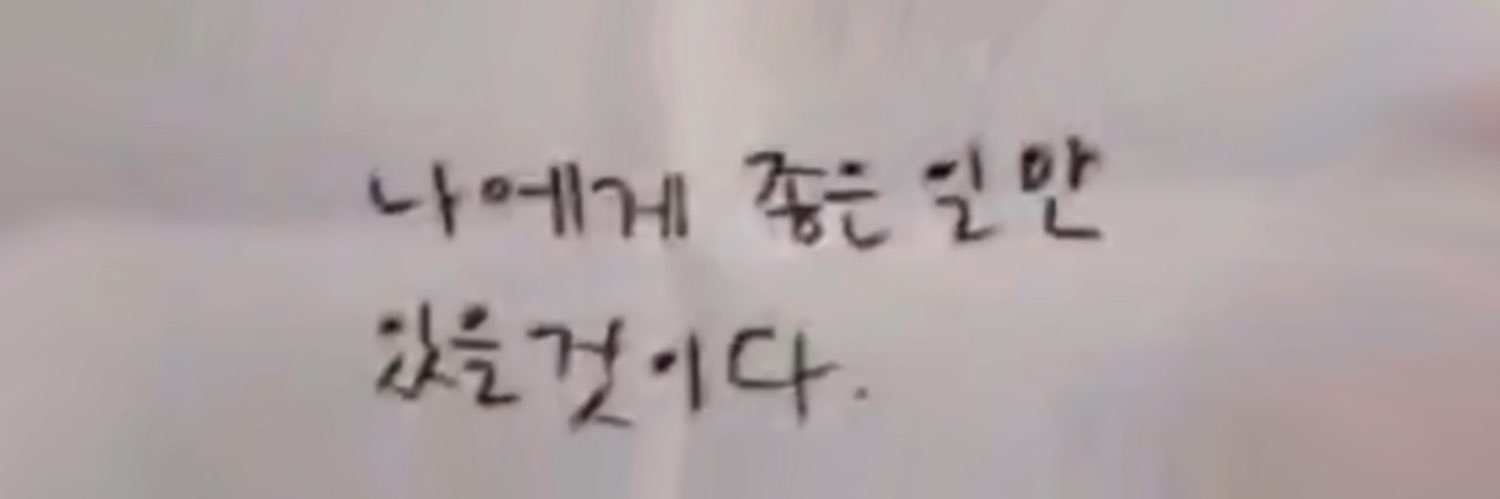 나에게 좋은 일만
있을 것이다.